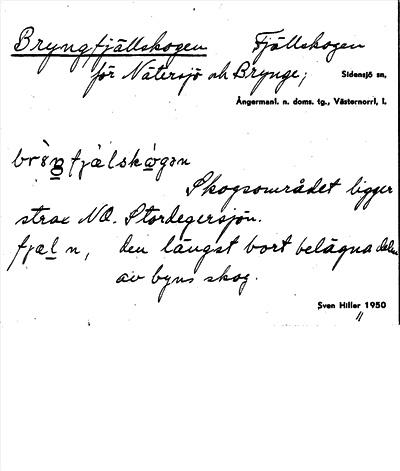 Bryngfjällskogen Fjällskogen
för Nätersjö och Brynge; Sidensjö sn,
Ångermanl. n. doms. tg., Västernorrl. l.
Skogsområdet ligger
strax NO. Stordegersjön.
fjæl n, den längst bort belägna delen
av byns skog.
Sven Hiller 1950